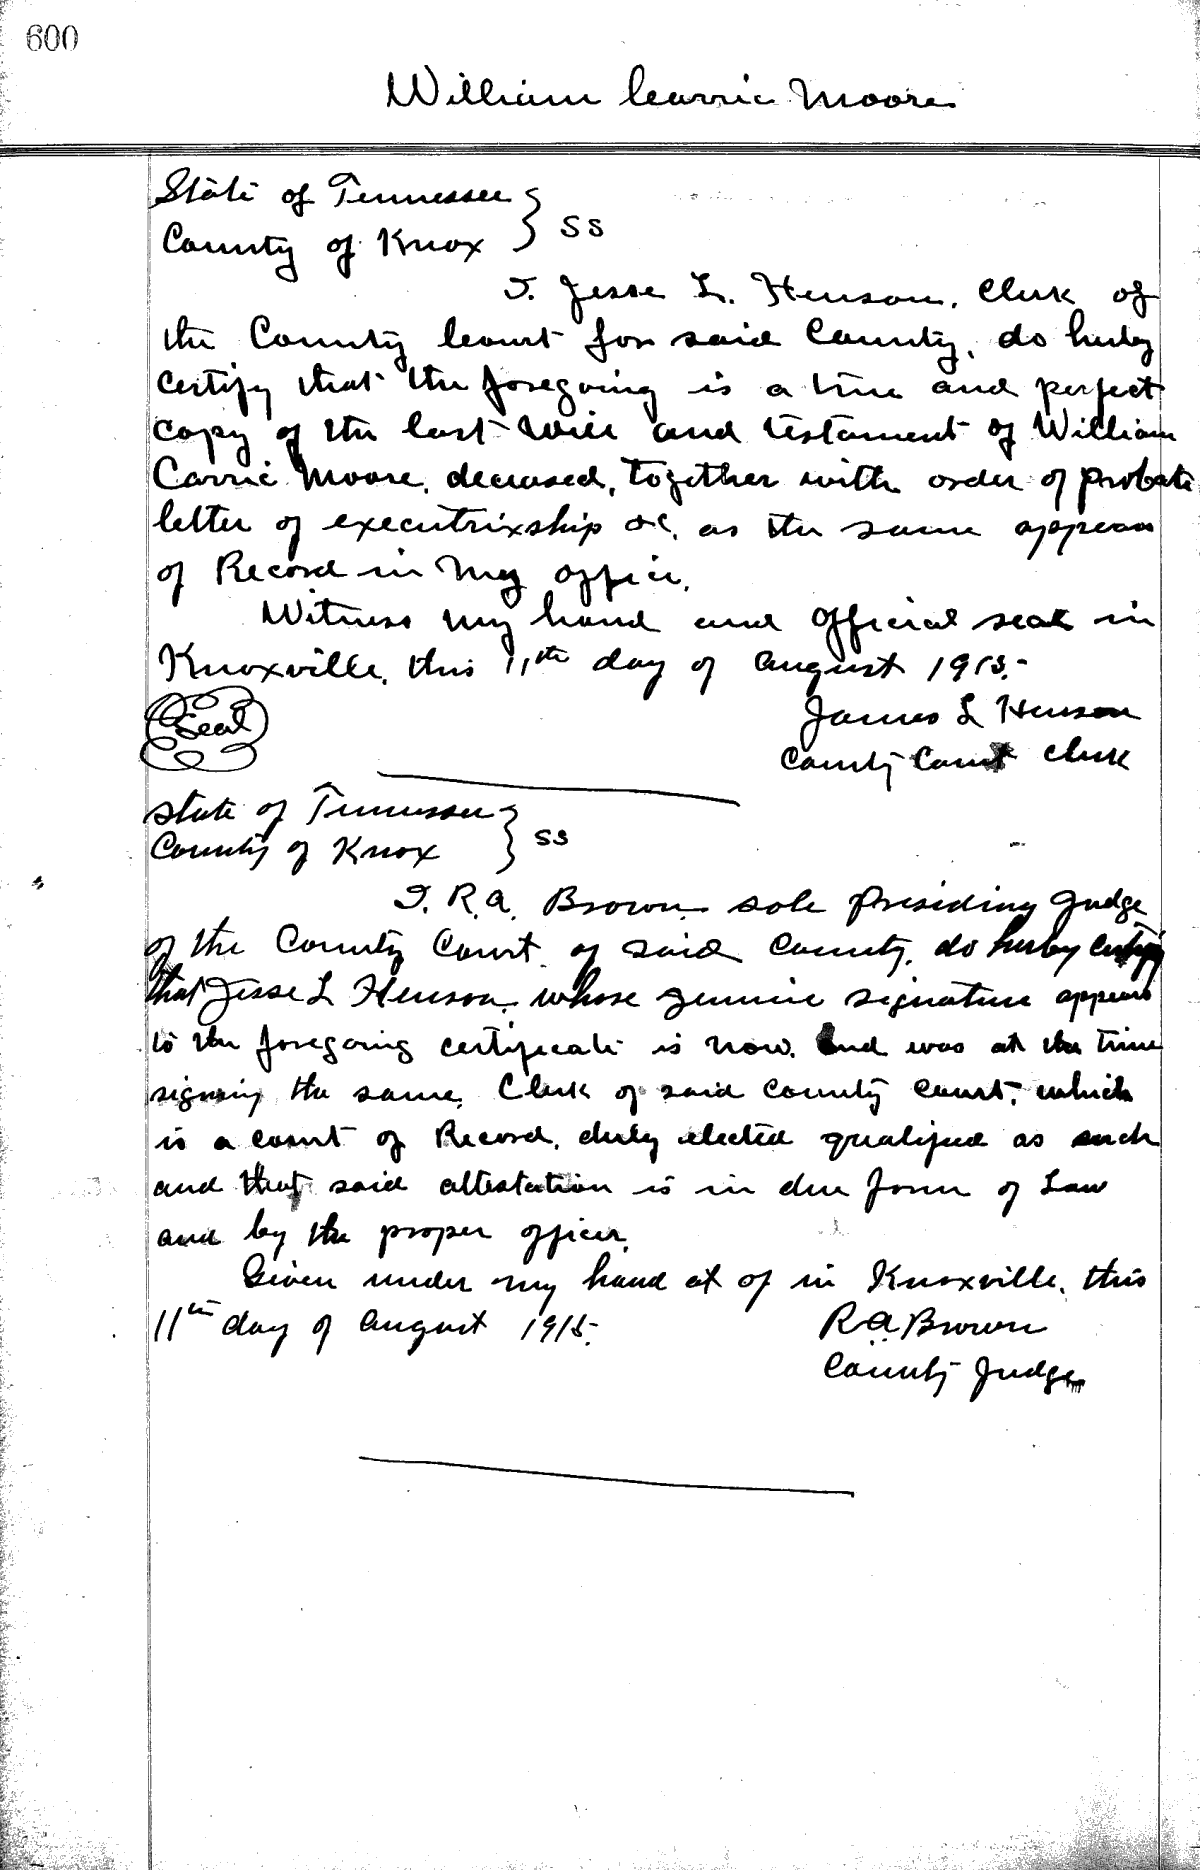 600
William Carric Moore
State of Tennessee } SS
County of Knox
I. Jesse L. Henson, Clerk of
the County Court for said County, do herby
certify that the foregoing is a true and perfect
copy of the last will and testament of William
Carric Moore, deceased, together with order of probate
letter of executrixship &c, as the same appears
of Record in my office.
Witness my hand and official seal in
Knoxville, this 11th day of August 1915.
Seal
James L Henson
County Court Clerk
State of Tennessee } SS
County of Knox
I. R. A. Brown sole Presiding Judge
of the County Court of said County, do herby certify
that Jesse L Henson, whose genuine signature appears
to the foregoing certificate is now, and was at the time
signing the same, Clerk of said County Court, which
is a court of Record, duly elected qualified as such
and that said attestation is in due form of Law
and by the proper officer.
Given under my hand at of in Knoxville, this
11th day of August 1915.
R A Brown
County Judge